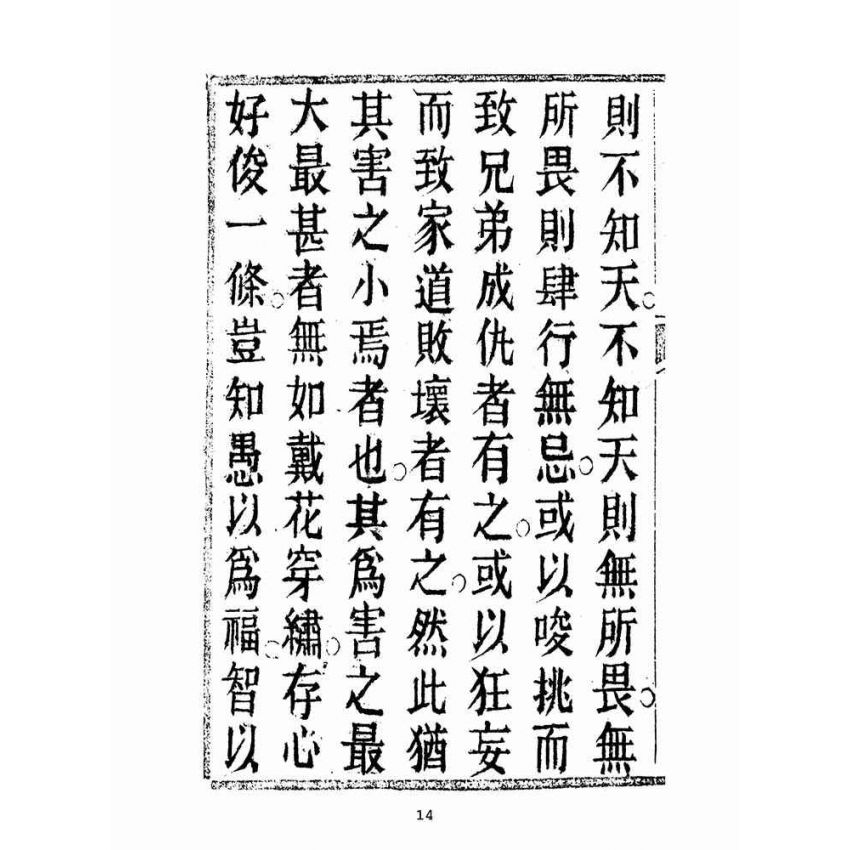 則不知天。不知天則無所畏。無
所畏則肆行無忌。或以唆挑而
致兄弟成仇者有之。或以狂妄
而致家道敗壞者有之。然此猶
其害之小焉者也。其爲害之最
大最甚者無如戴花穿繡。存心
好俊一條。豈知愚以爲福。智以
14